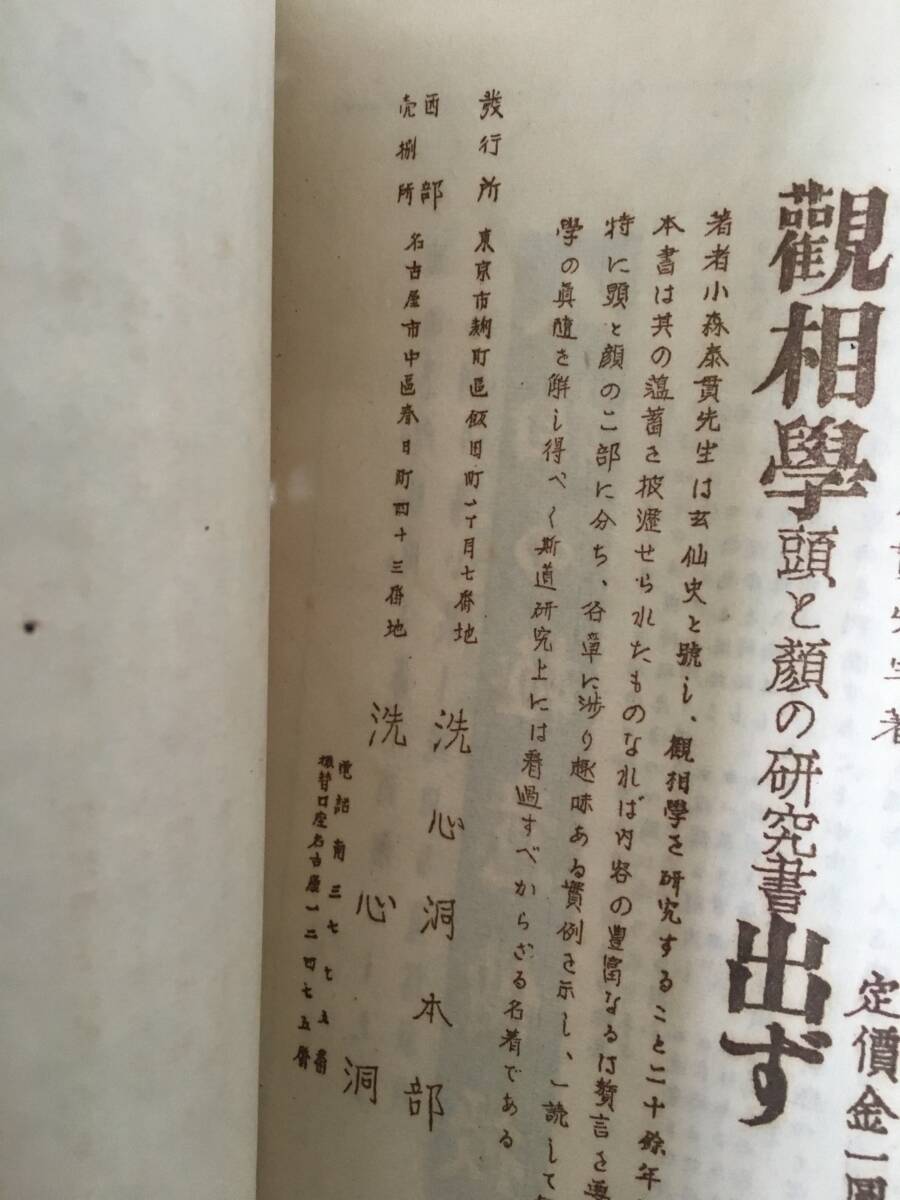 先生著
定價金一圓
觀相學頭と顏の研究書出ず
著者小森泰貫先生は玄仙史と號し、觀相學を研究すること二十餘年
本書は其の薀蓄を披瀝せられたものなれば內容の豊富なるは贅言を要
特に頭と顏の二部に分ち、各章に涉り趣味ある實例を示し、一読して
學の眞髄を解し得べく斯道研究上には看過すべからざる名着である
發行所 東京市麹町區飯田町一丁目七番地 洗心洞本部
西部売捌所 名古屋市中區春日町四十三番地 洗心洞
電話南三七七五番
振替口座名古屋一二四七五番